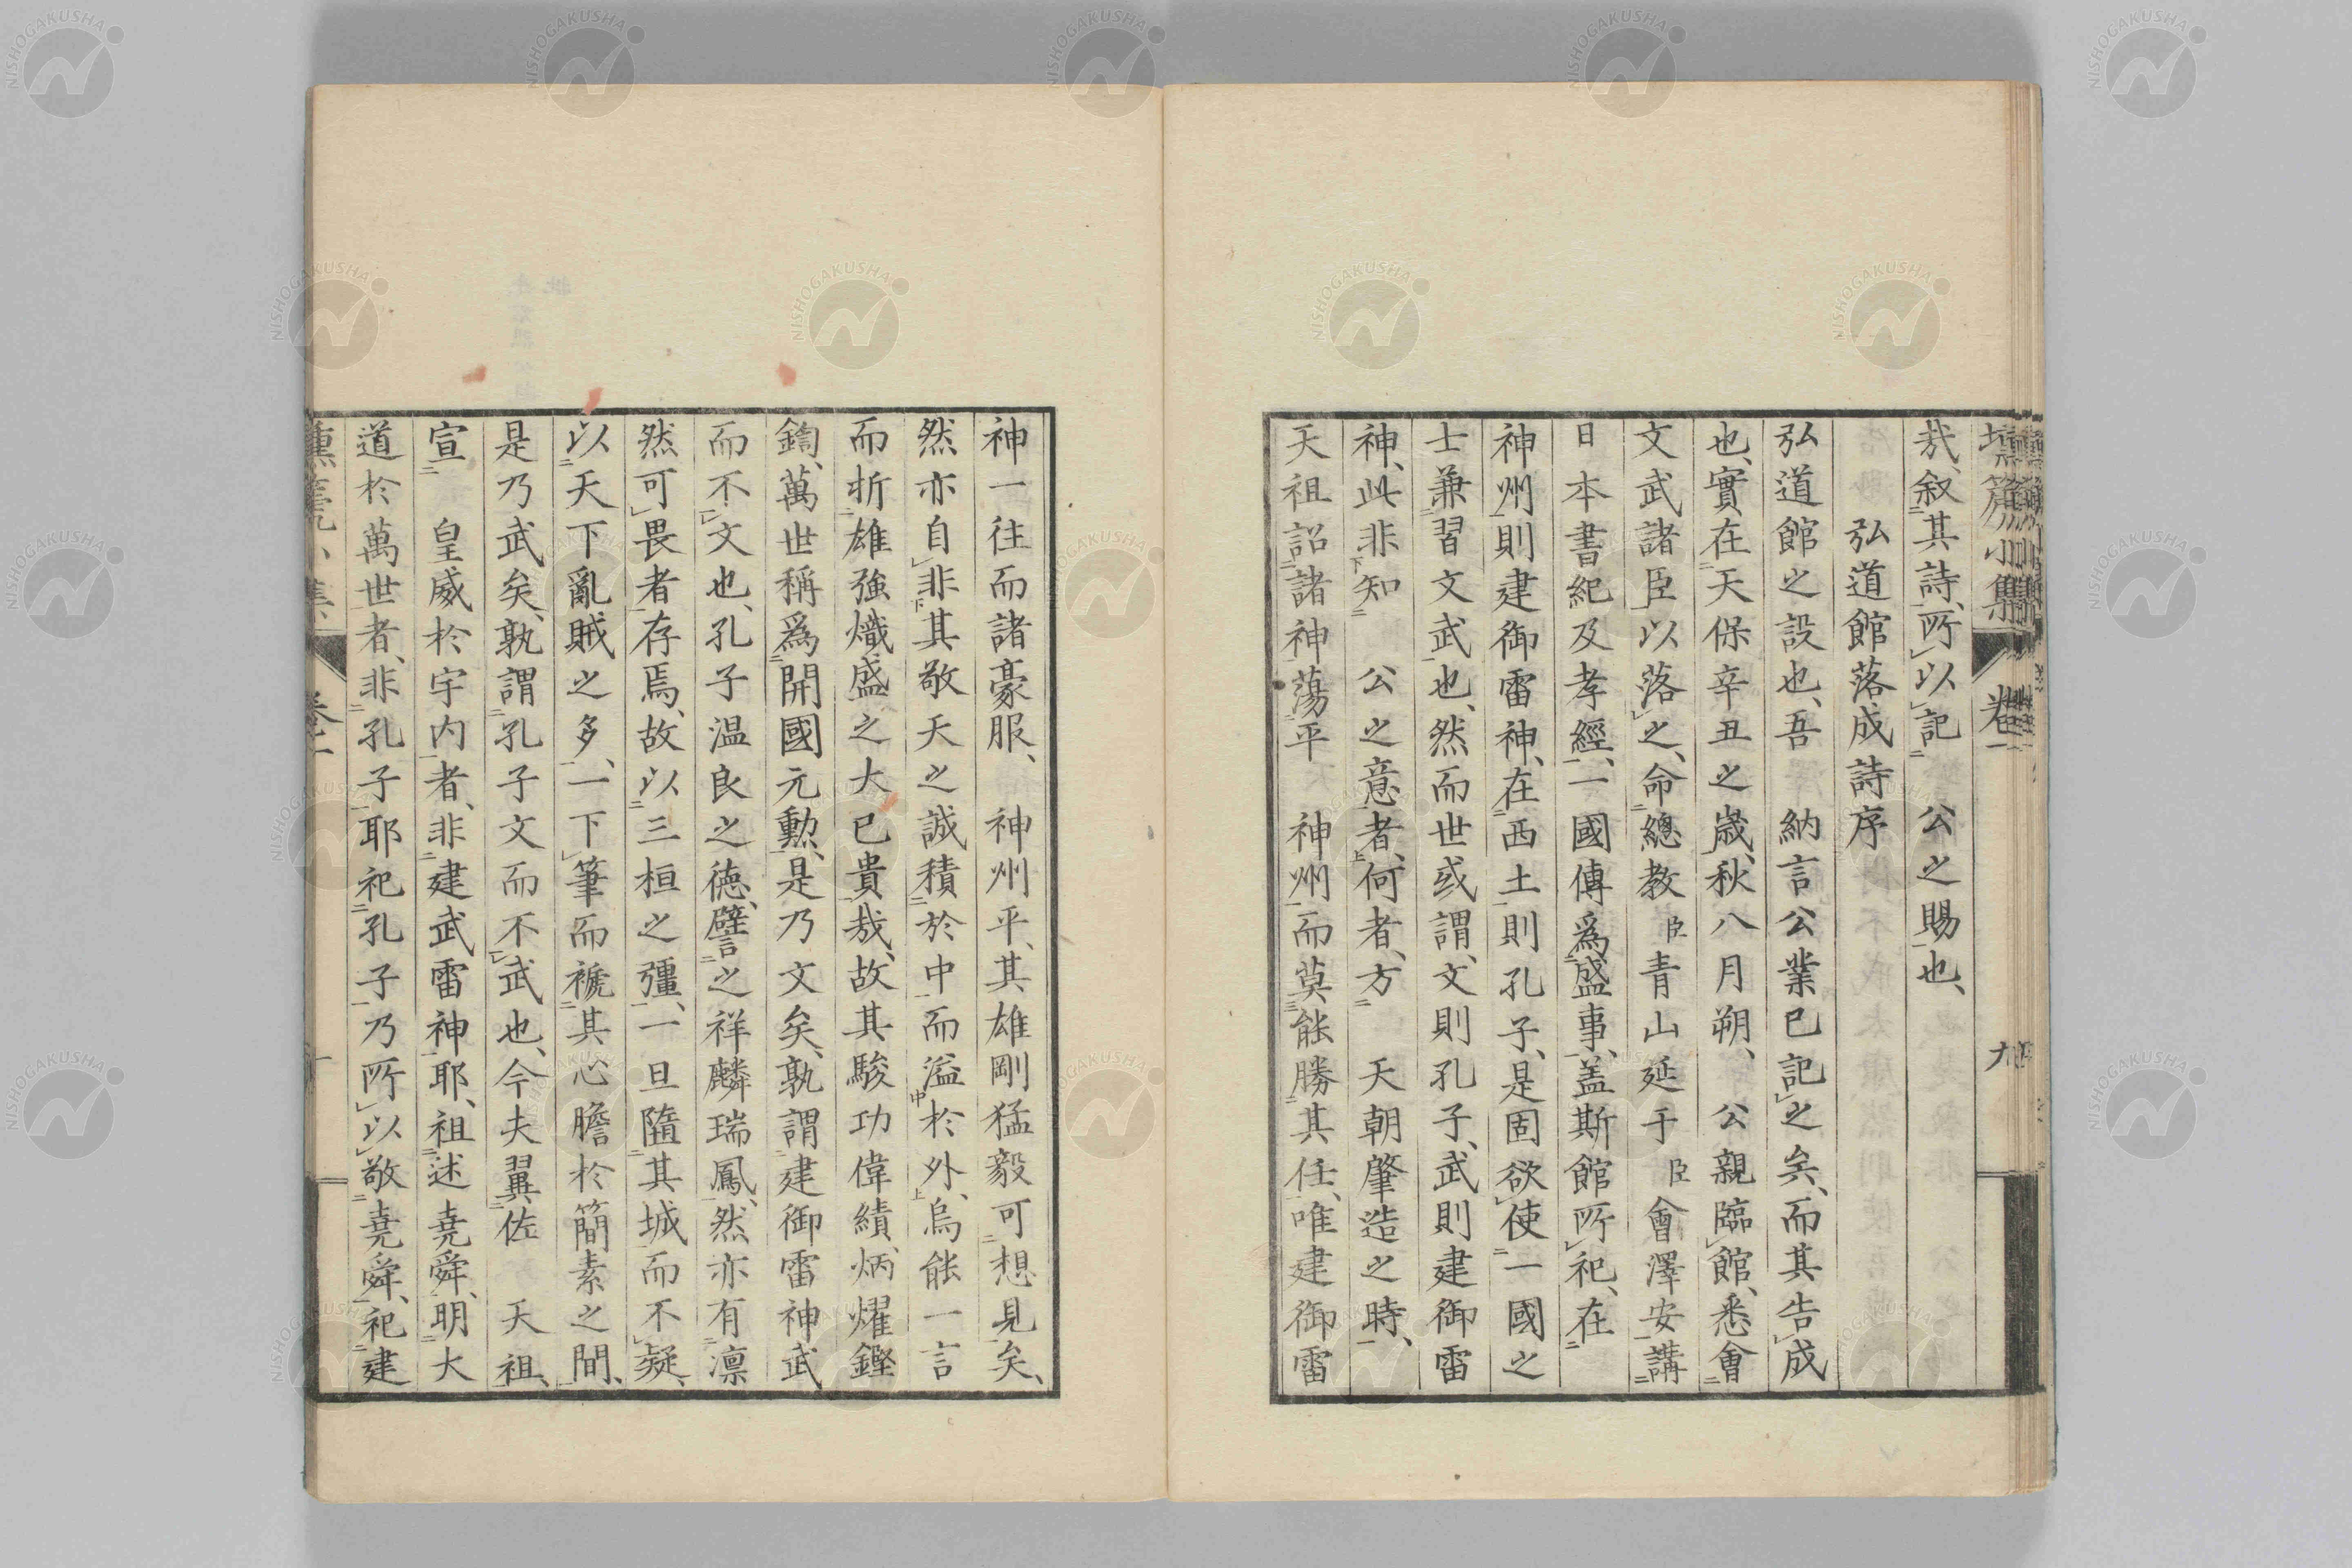 壎篪小集 卷一 九
哉、叙其詩、所以記 公之賜也、
弘道館落成詩序
弘道館之設也、吾 納言公業已記之矣、而其告成
也、實在天保辛丑之歲、秋八月朔、 公親臨館、悉會
文武諸臣以落之、命總教臣青山延于臣會澤安講
日本書紀及孝經、一國傳爲盛事、蓋斯館所祀、在
神州則建御雷神、在西土則孔子、是固欲使一國之
士兼習文武也、然而世或謂、文則孔子、武則建御雷
神、此非知 公之意者、何者、方 天朝肇造之時、
天祖詔諸神蕩平 神州而莫能勝其任、唯建御雷
神一往而諸豪服、 神州平、其雄剛猛毅可想見矣、
然亦自非其敬天之誠積於中而溢於外、烏能一言
而折雄強熾盛之大已貴哉、故其駿功偉績、炳燿鏗
鍧、萬世稱爲開國元勳、是乃文矣、孰謂建御雷神武
而不文也、孔子温良之德、譬之祥麟瑞鳳、然亦有凛
然可畏者存焉、故以三桓之彊、一旦隨其城而不疑、
以天下亂賊之多、一下筆而褫其心膽於簡素之間、
是乃武矣、孰謂孔子文而不武也、今夫翼佐 天祖、
宣 皇威於宇内者、非建武雷神耶、祖述堯舜、明大
道於萬世者、非孔子耶祀孔子乃所以敬堯舜、祀建
壎篪小集 卷一
NISHOGAKUSHA